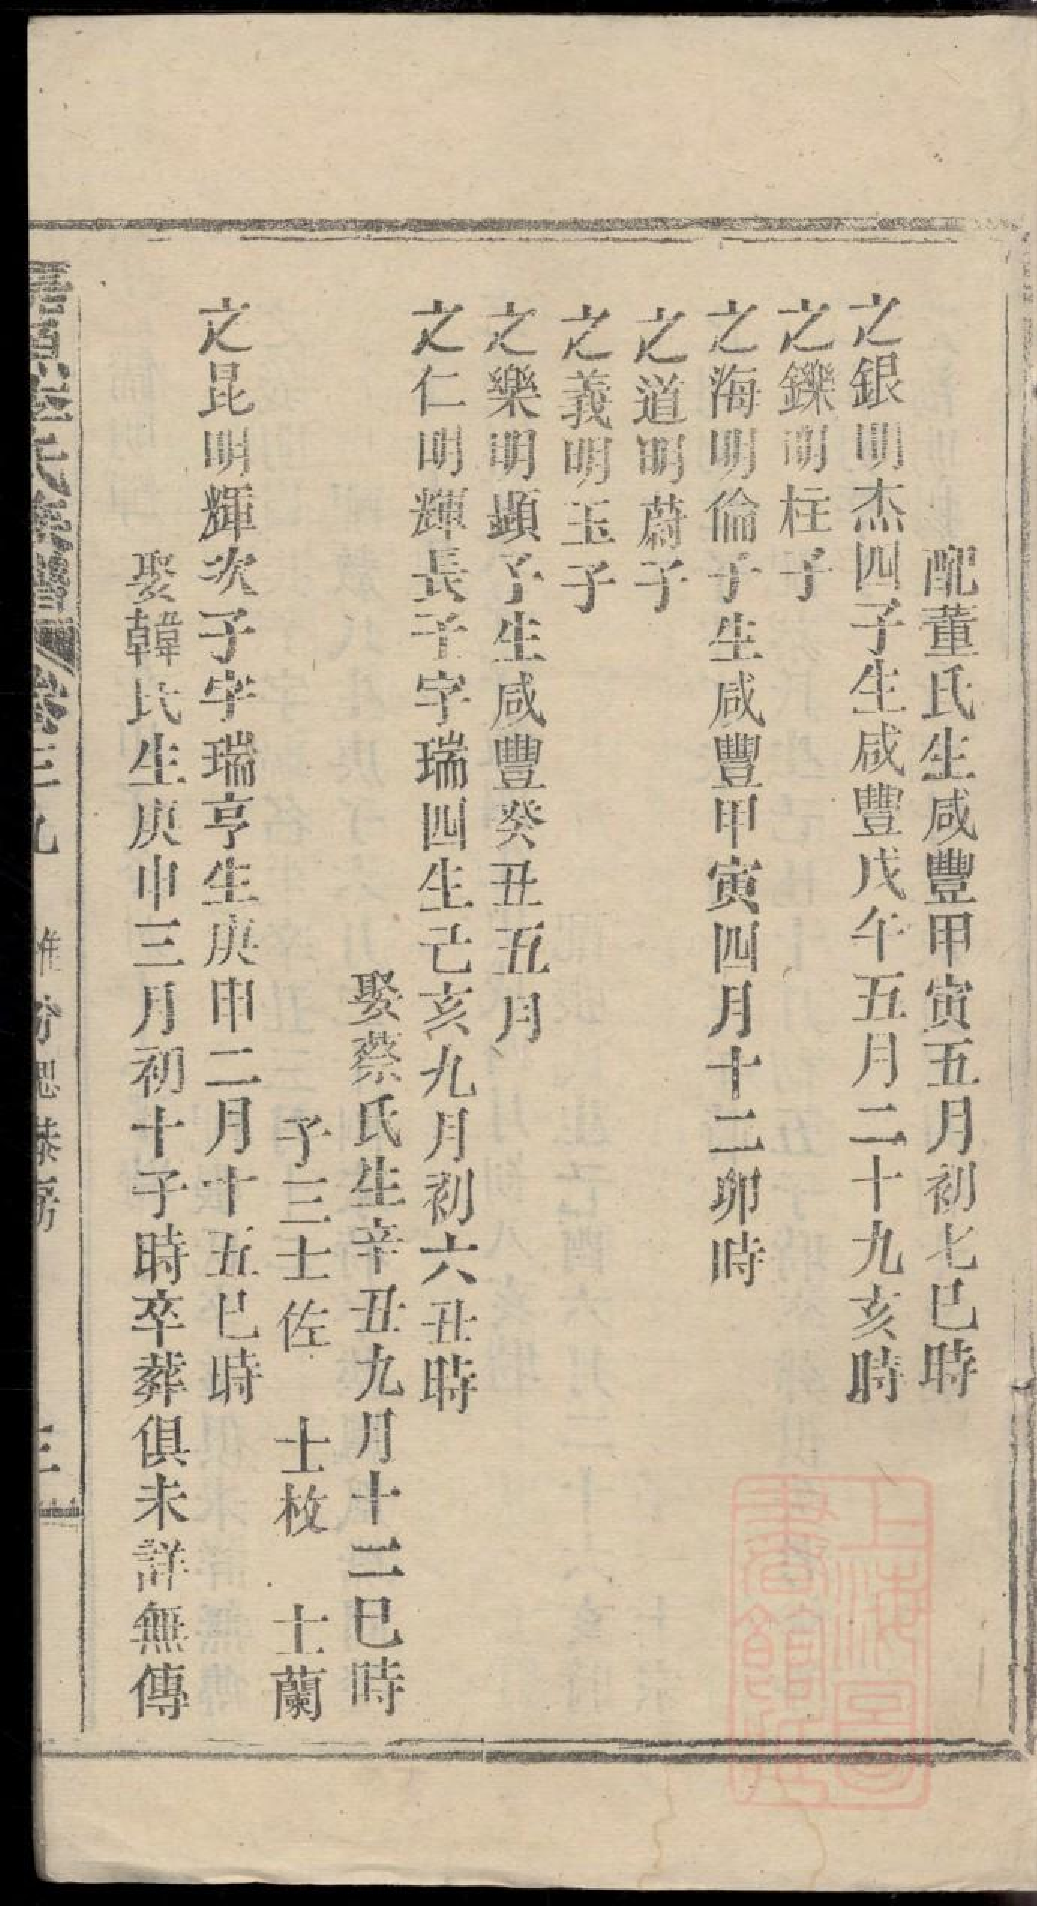 配董氏生咸豐甲寅五月初七巳時
之銀明杰四子生咸豐戊午五月二十九亥時
之鑠明柱子
之海明倫子生咸豐甲寅四月十二卯時
之道明蔚子
之義明玉子
之樂明顯子生咸豐癸丑五月
之仁明輝長子字瑞四生己亥九月初六丑時
娶蔡氏生辛丑九月十二巳時
子三士佐 士枚 士蘭
之昆明輝次子字瑞亨生庚申二月十五巳時
娶韓氏生庚申三月初十子時卒葬俱未詳無傳
氏族譜 卷三九 三
上海圖書館藏